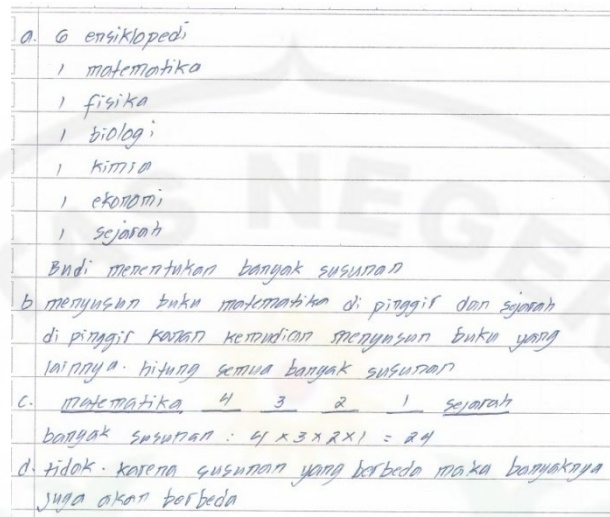 a. 6 ensiklopedi
1 matematika
1 fisika
1 biologi
1 kimia
1 ekonomi
1 sejarah
Budi menentukan banyak susunan
b menyusun buku matematika di pinggir dan sejarah
di pinggir kanan kemudian menyusun buku yang
lainnya. hitung semua banyak susunan
c. matematika 4 3 2 1 sejarah
banyak susunan : 4 x 3 x 2 x 1 = 24
d. tidak. karena susunan yang berbeda maka banyaknya
juga akan berbeda
AS NEGE